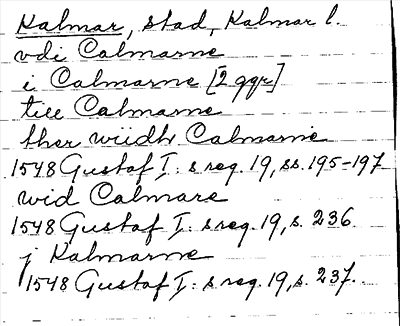 Kalmar, stad, Kalmar l.
vdi Calmarne
i Calmarne [2 ggr]
till Calmarne
ther wiidh Calmarne
1548 Gustaf I:s reg. 19, ss. 195-197
wid Calmare
1548 Gustaf I:s reg. 19, s. 236
j Kalmarne
1548 Gustaf I:s reg. 19, s. 237.